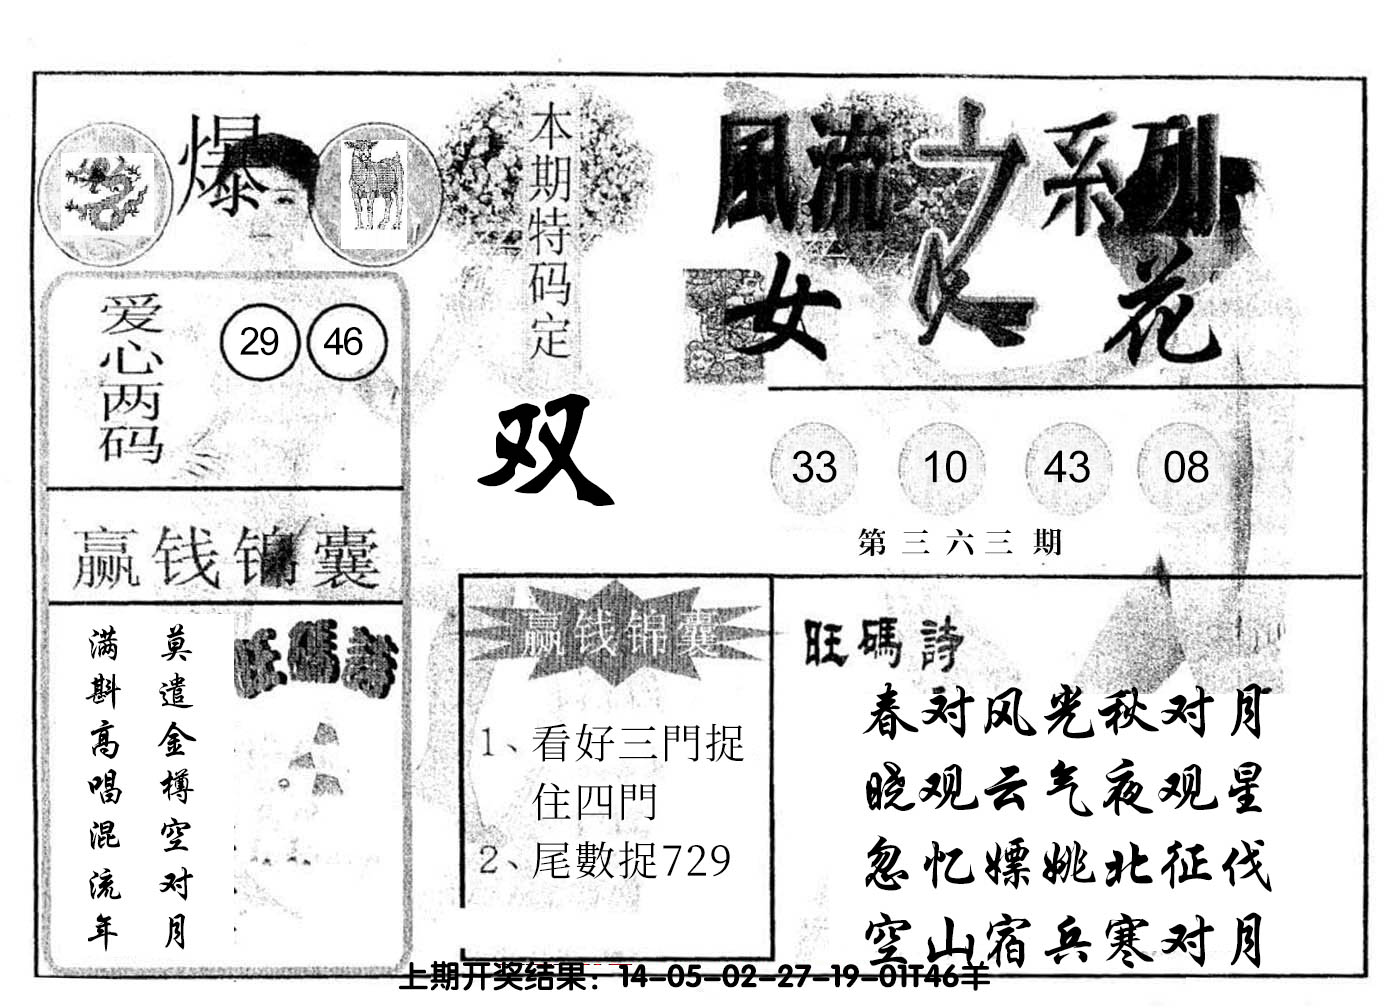 爆
本期特码定
双
風流之系列
女人花
爱心两码
29 46
33 10 43 08
第三六三期
赢钱锦囊
莫遣金樽空对月
满斟高唱混流年
旺碼詩
赢钱锦囊
1、看好三門捉
住四門
2、尾數捉729
旺碼詩
春对风光秋对月
晓观云气夜观星
忽忆嫖姚北征伐
空山宿兵寒对月
上期开奖结果：14-05-02-27-19-01T46羊